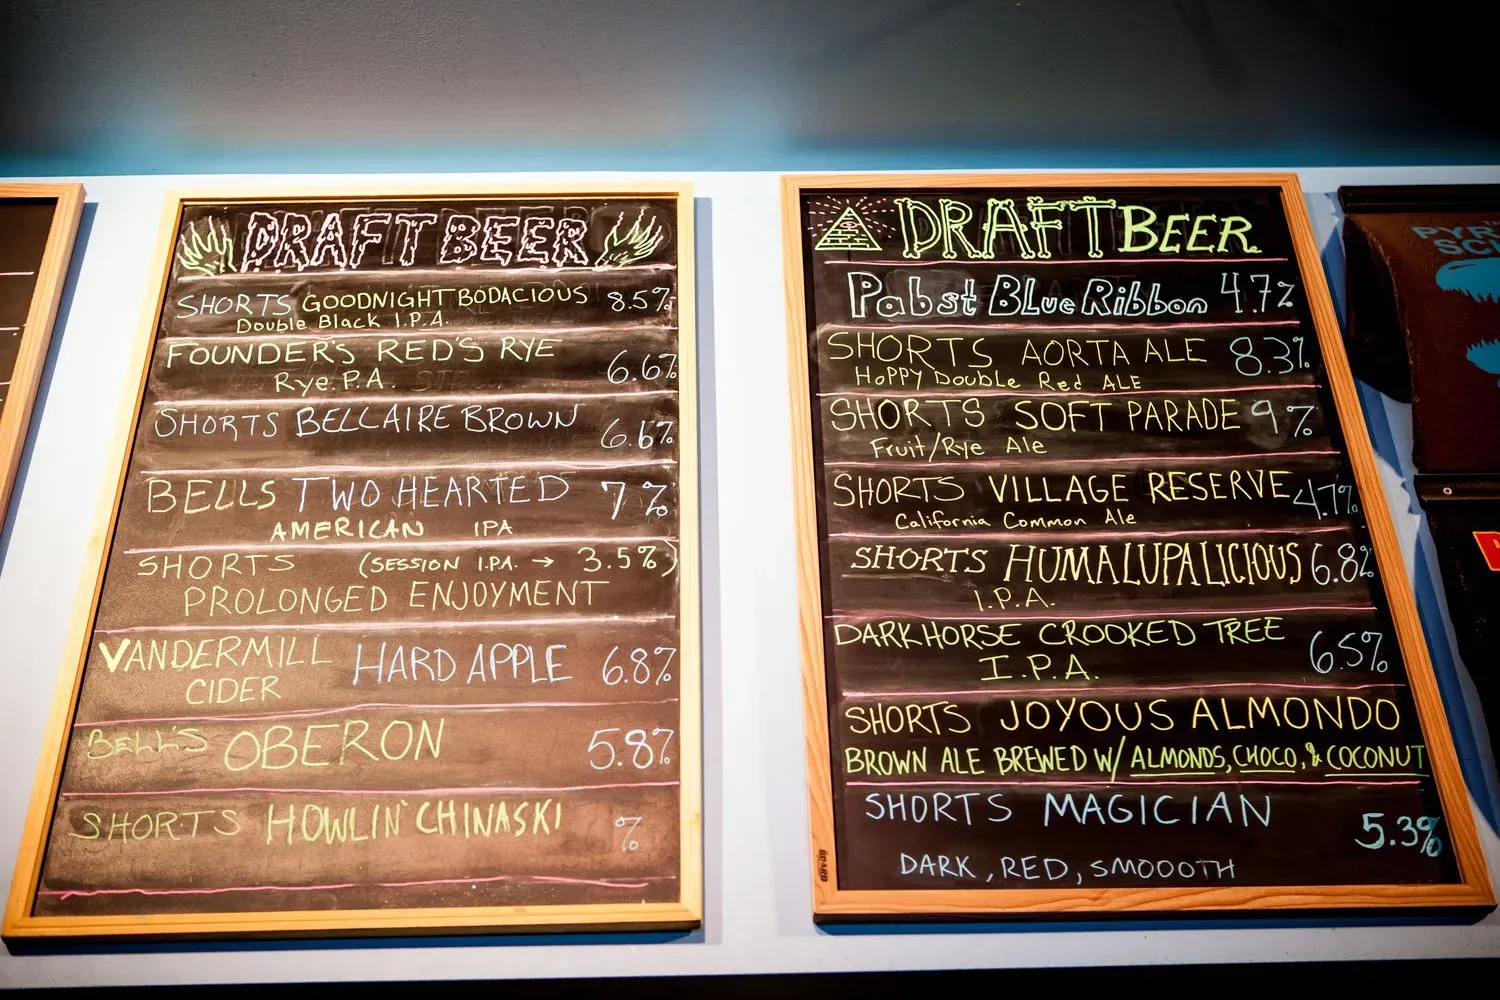 DRAFT BEER
SHORTS GOODNIGHT BODACIOUS 8.5%
Double Black I.P.A.
FOUNDER'S RED'S RYE 6.6%
Rye.P.A.
SHORTS BELLAIRE BROWN 6.6%
BELLS TWO HEARTED 7%
AMERICAN IPA
SHORTS (SESSION I.P.A. → 3.5%)
PROLONGED ENJOYMENT
VANDERMILL HARD APPLE 6.8%
CIDER
BELL'S OBERON 5.8%
SHORTS HOWLIN' CHINASKI %
DRAFT BEER
Pabst Blue Ribbon 4.7%
SHORTS AORTA ALE 8.3%
HOPPY Double Red ALE
SHORTS SOFT PARADE 9%
Fruit/Rye Ale
SHORTS VILLAGE RESERVE 4.7%
California Common Ale
SHORTS HUMALUPALICIOUS 6.8%
I.P.A.
DARKHORSE CROOKED TREE 6.5%
I.P.A.
SHORTS JOYOUS ALMONDO
BROWN ALE BREWED W/ ALMONDS, CHOCO, & COCONUT
SHORTS MAGICIAN 5.3%
DARK, RED, SMOOOTH
BOARD